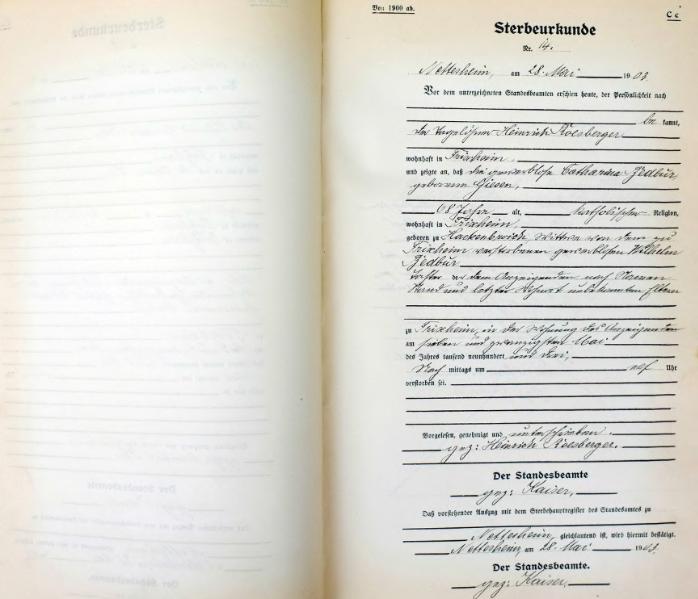 Von 1900 ab.
C c
Sterbeurkunde
Nr. 14.
Nettersheim, am 28. Mai 1903.
Vor dem unterzeichneten Standesbeamten erschien heute, der Persönlichkeit nach
be kannt,
der Tagelöhner Heinrich Roesberger
wohnhaft in Frixheim,
und zeigte an, daß die gewerblose Catharina Zedbür
geborene Giesen,
68 Jahre alt, katholischer Religion,
wohnhaft in Frixheim,
geboren zu Hackenbroich, Wittwe von dem zu
Frixheim verstorbenen gewerblosen Wilhelm
Zedbür
Tochter der dem Anzeigenden nach Namen
Stand und letzter Wohnort unbekannten Eltern
zu Frixheim, in der Wohnung des Anzeigenden
am sieben und zwanzigsten Mai
des Jahres tausend neunhundert und drei,
Nach mittags um elf Uhr
verstorben sei.
Vorgelesen, genehmigt und unterschrieben.
gez: Heinrich Roesberger.
Der Standesbeamte
gez: Kaiser,
Daß vorstehender Auszug mit dem Sterbehauptregister des Standesamtes zu
Nettersheim, gleichlautend ist, wird hiermit bestätigt.
Nettersheim, am 28. Mai 1903.
Der Standesbeamte.
gez: Kaiser.